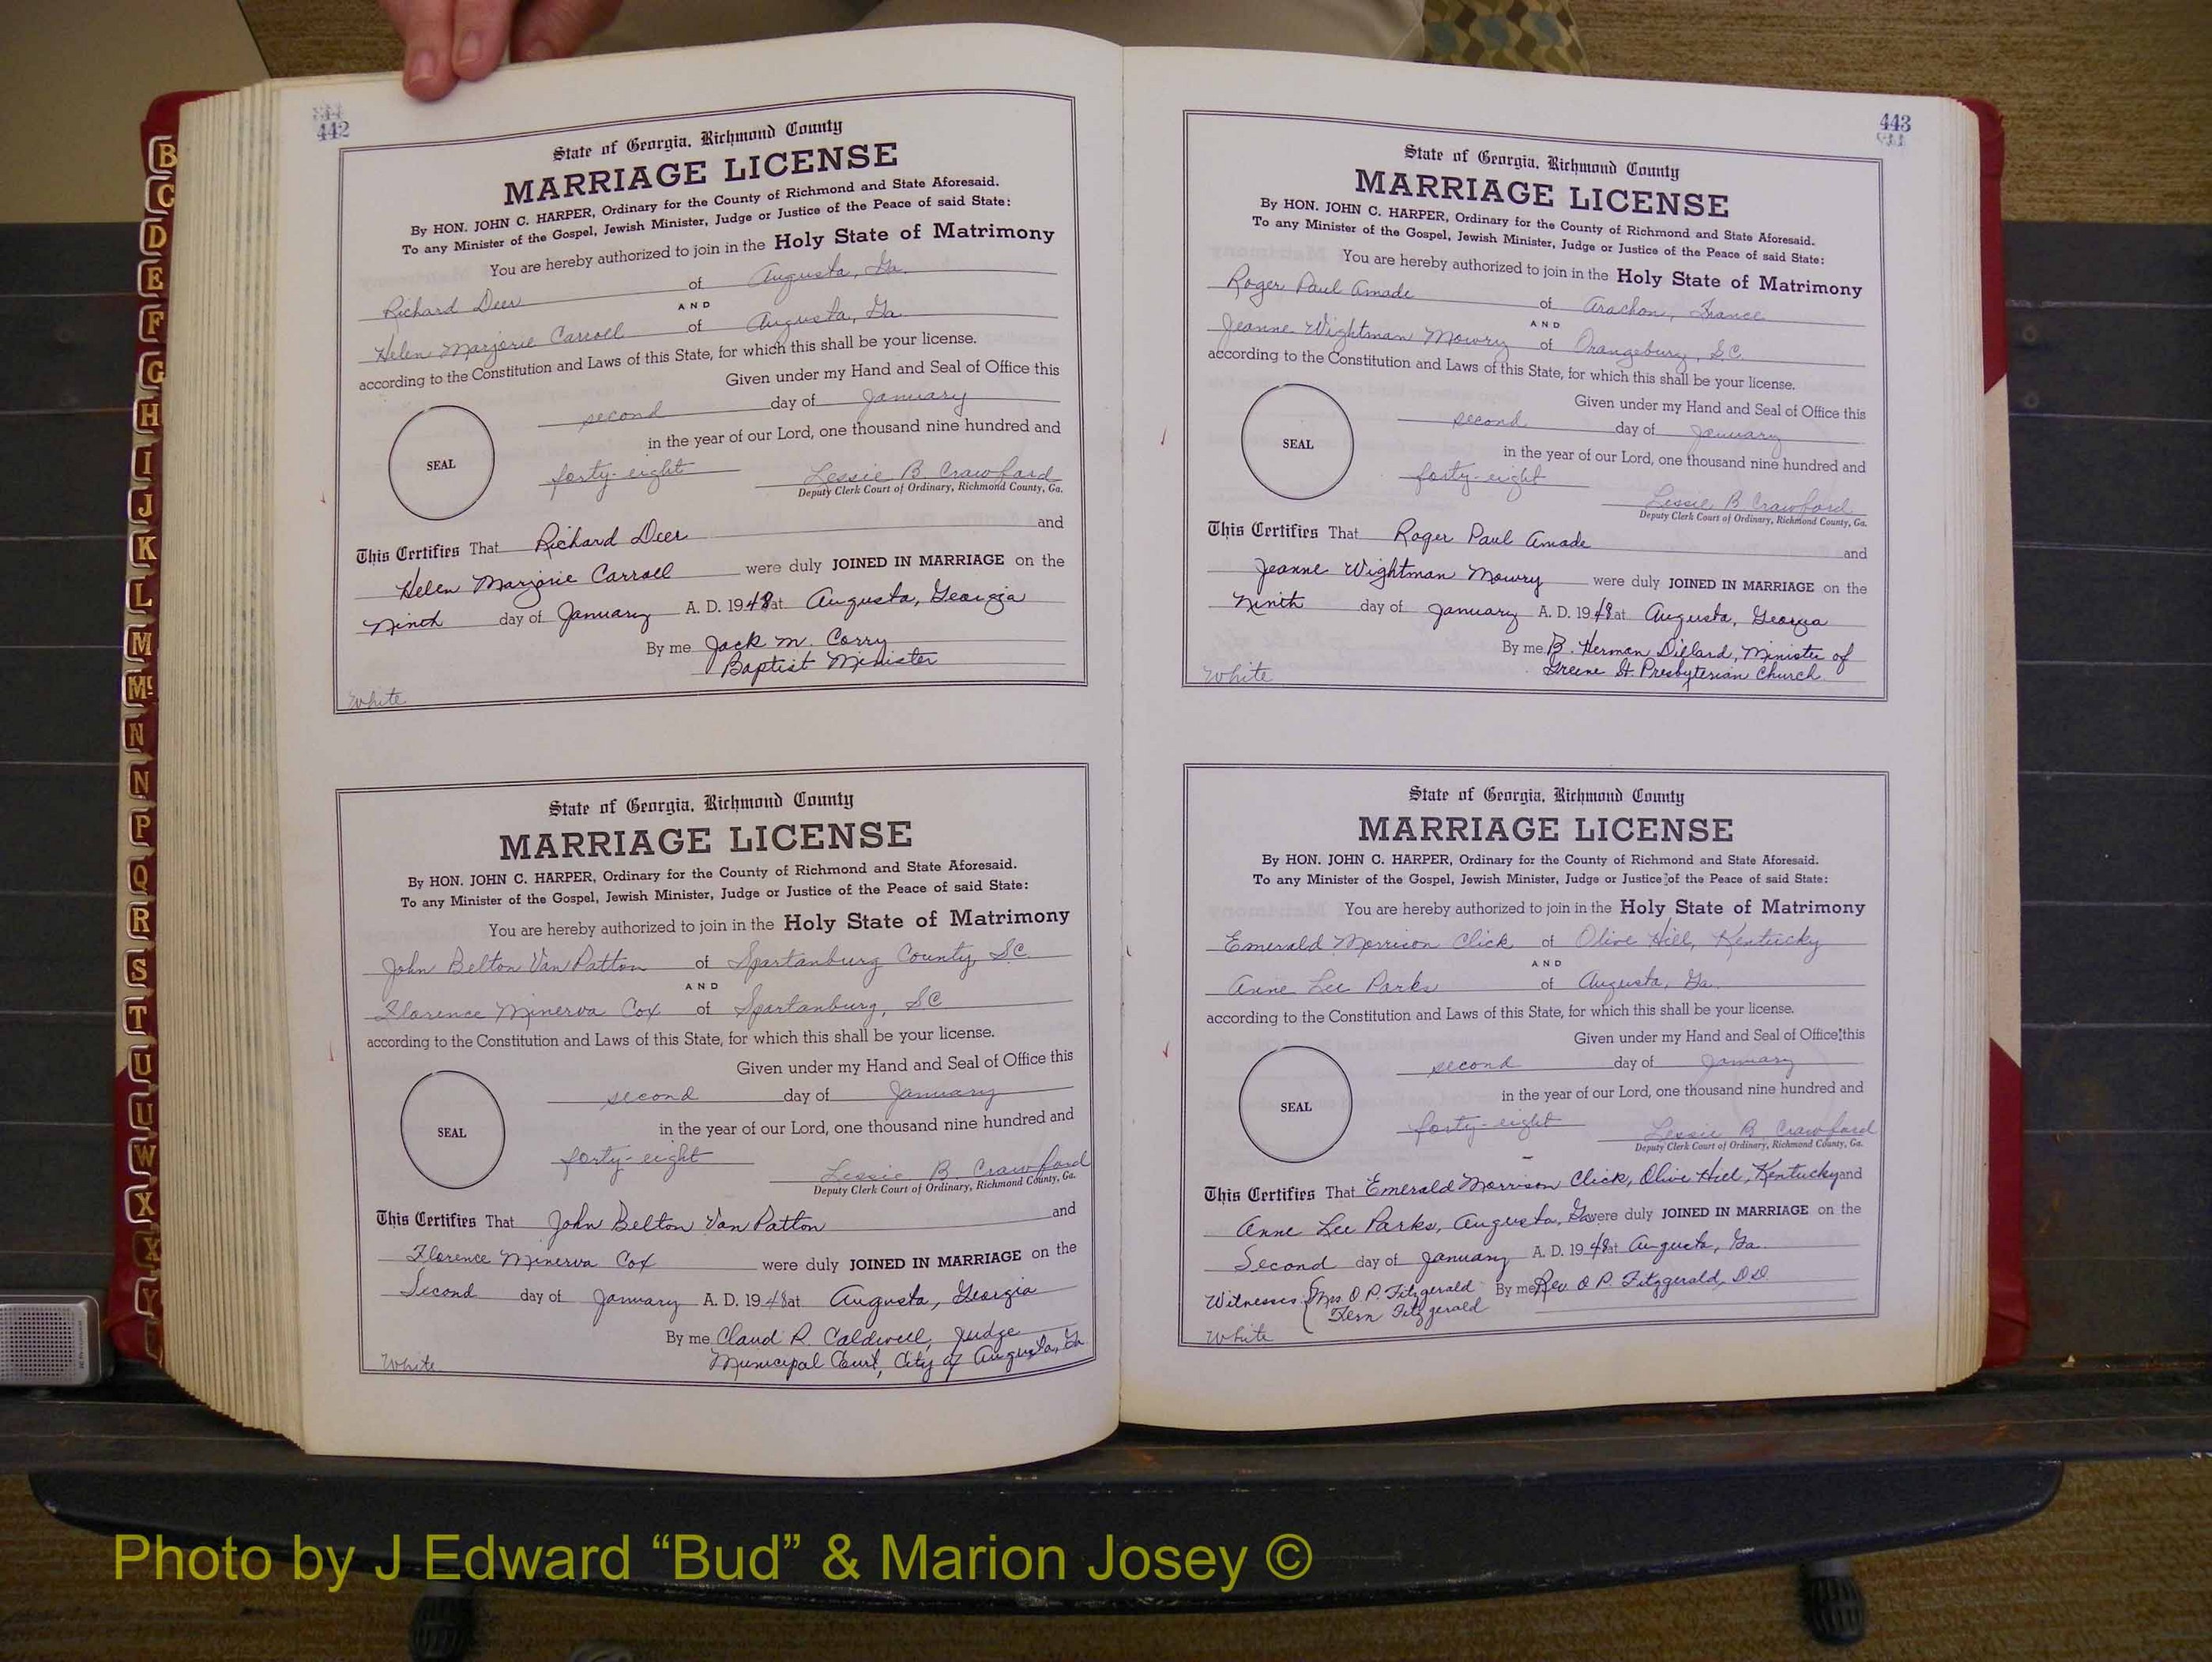 442
State of Georgia, Richmond County
MARRIAGE LICENSE
By HON. JOHN C. HARPER, Ordinary for the County of Richmond and State Aforesaid.
To any Minister of the Gospel, Jewish Minister, Judge or Justice of the Peace of said State:
You are hereby authorized to join in the Holy State of Matrimony
Richard Deer of Augusta, Ga.
AND
Helen Marjorie Carroll of Augusta, Ga.
according to the Constitution and Laws of this State, for which this shall be your license.
Given under my Hand and Seal of Office this
second day of January
in the year of our Lord, one thousand nine hundred and
SEAL
forty-eight Lessie B Crawford
Deputy Clerk Court of Ordinary, Richmond County, Ga.
This Certifies That Richard Deer and
Helen Marjorie Carroll were duly JOINED IN MARRIAGE on the
Ninth day of January A. D. 1948 at Augusta, Georgia
By me Jack M. Corry
Baptist Minister
White
State of Georgia, Richmond County
MARRIAGE LICENSE
By HON. JOHN C. HARPER, Ordinary for the County of Richmond and State Aforesaid.
To any Minister of the Gospel, Jewish Minister, Judge or Justice of the Peace of said State:
You are hereby authorized to join in the Holy State of Matrimony
John Belton Van Patton of Spartanburg County, SC
AND
Florence Minerva Cox of Spartanburg, SC
according to the Constitution and Laws of this State, for which this shall be your license.
Given under my Hand and Seal of Office this
second day of January
in the year of our Lord, one thousand nine hundred and
SEAL
forty-eight Lessie B. Crawford
Deputy Clerk Court of Ordinary, Richmond County, Ga.
This Certifies That John Belton Van Patton and
Florence Minerva Cox were duly JOINED IN MARRIAGE on the
Second day of January A. D. 1948 at Augusta, Georgia
By me Claud R. Caldwell, Judge
Municipal Court, City of Augusta, Ga
White
443
State of Georgia, Richmond County
MARRIAGE LICENSE
By HON. JOHN C. HARPER, Ordinary for the County of Richmond and State Aforesaid.
To any Minister of the Gospel, Jewish Minister, Judge or Justice of the Peace of said State:
You are hereby authorized to join in the Holy State of Matrimony
Roger Paul Amade of Arachon, France
AND
Jeanne Wightman Mowry of Orangeburg, S.C.
according to the Constitution and Laws of this State, for which this shall be your license.
Given under my Hand and Seal of Office this
second day of January
in the year of our Lord, one thousand nine hundred and
SEAL
forty-eight Lessie B Crawford
Deputy Clerk Court of Ordinary, Richmond County, Ga.
This Certifies That Roger Paul Amade and
Jeanne Wightman Mowry were duly JOINED IN MARRIAGE on the
Ninth day of January A. D. 1948 at Augusta, Georgia
By me B. Herman Dillard, Minister of
Greene St. Presbyterian Church
White
State of Georgia, Richmond County
MARRIAGE LICENSE
By HON. JOHN C. HARPER, Ordinary for the County of Richmond and State Aforesaid.
To any Minister of the Gospel, Jewish Minister, Judge or Justice of the Peace of said State:
You are hereby authorized to join in the Holy State of Matrimony
Emerald Morrison Click of Olive Hill, Kentucky
AND
Anne Lee Parks of Augusta, Ga.
according to the Constitution and Laws of this State, for which this shall be your license.
Given under my Hand and Seal of Office this
second day of January
in the year of our Lord, one thousand nine hundred and
SEAL
forty-eight Lessie B Crawford
Deputy Clerk Court of Ordinary, Richmond County, Ga.
This Certifies That Emerald Morrison Click, Olive Hill, Kentucky and
Anne Lee Parks, Augusta, Ga were duly JOINED IN MARRIAGE on the
Second day of January A. D. 1948 at Augusta, Ga.
Witnesses { Mrs O P. Fitzgerald By me Rev O P. Fitzgerald, DD
Fern Fitzgerald
White
B
C
D
E
F
G
H
I
J
K
L
M
Mc
N
N
P
Q
R
S
T
U
U
W
X
X
Y
Photo by J Edward “Bud” & Marion Josey ©